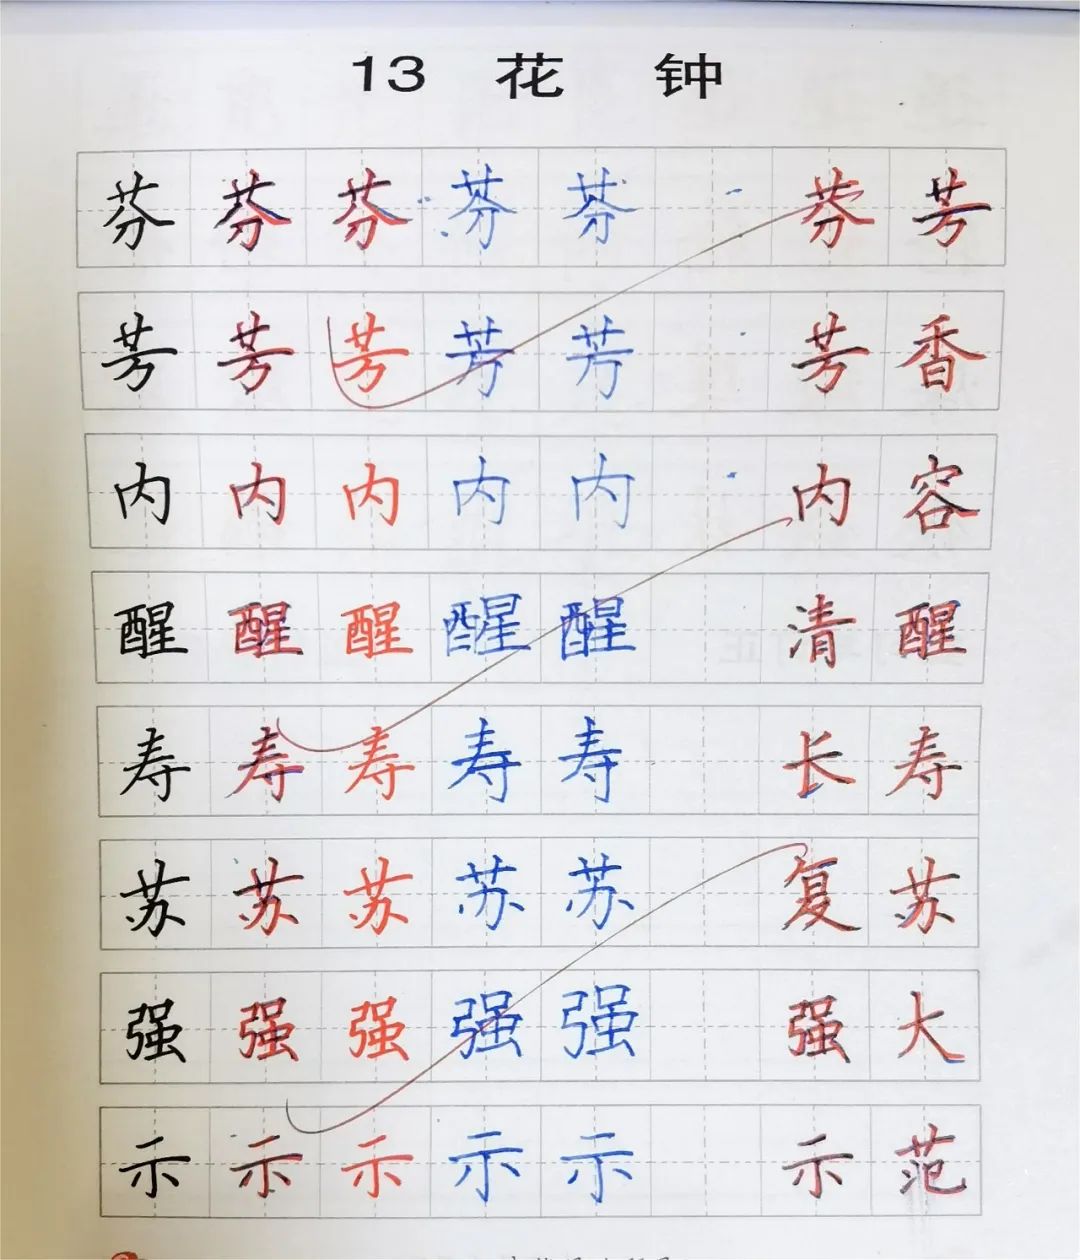 13 花 钟
芬 芬 芬 芬 芬 芬 芳
芳 芳 芳 芳 芳 芳 香
内 内 内 内 内 内 容
醒 醒 醒 醒 醒 清 醒
寿 寿 寿 寿 寿 长 寿
苏 苏 苏 苏 苏 复 苏
强 强 强 强 强 强 大
示 示 示 示 示 示 范